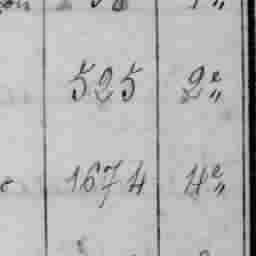 525 2e „
1674 4e „